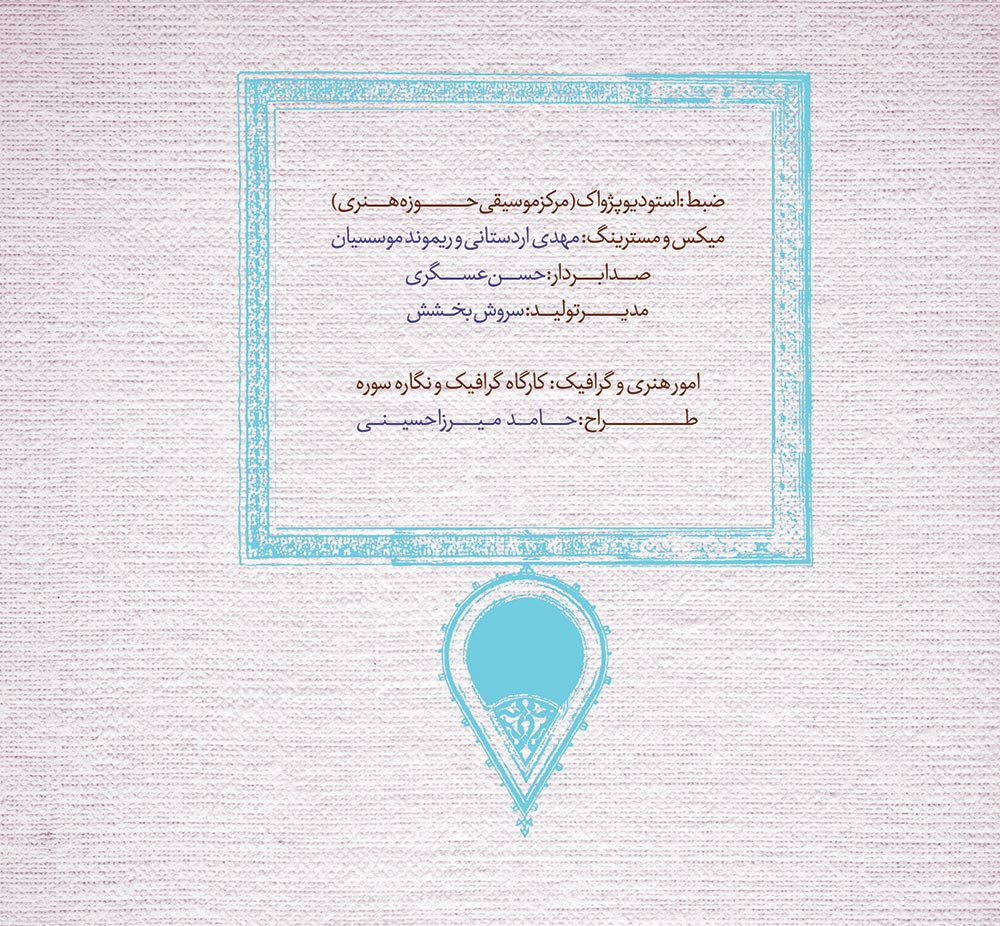 ضبط: استودیو پژواک (مرکز موسیقی حوزه هنری)
میکس و مسترینگ: مهدی اردستانی و ریموند موسسیان
صدابردار: حسن عسگری
مدیر تولید: سروش بخشش
امور هنری و گرافیک: کارگاه گرافیک و نگاره سوره
طراح: حامد میرزاحسینی